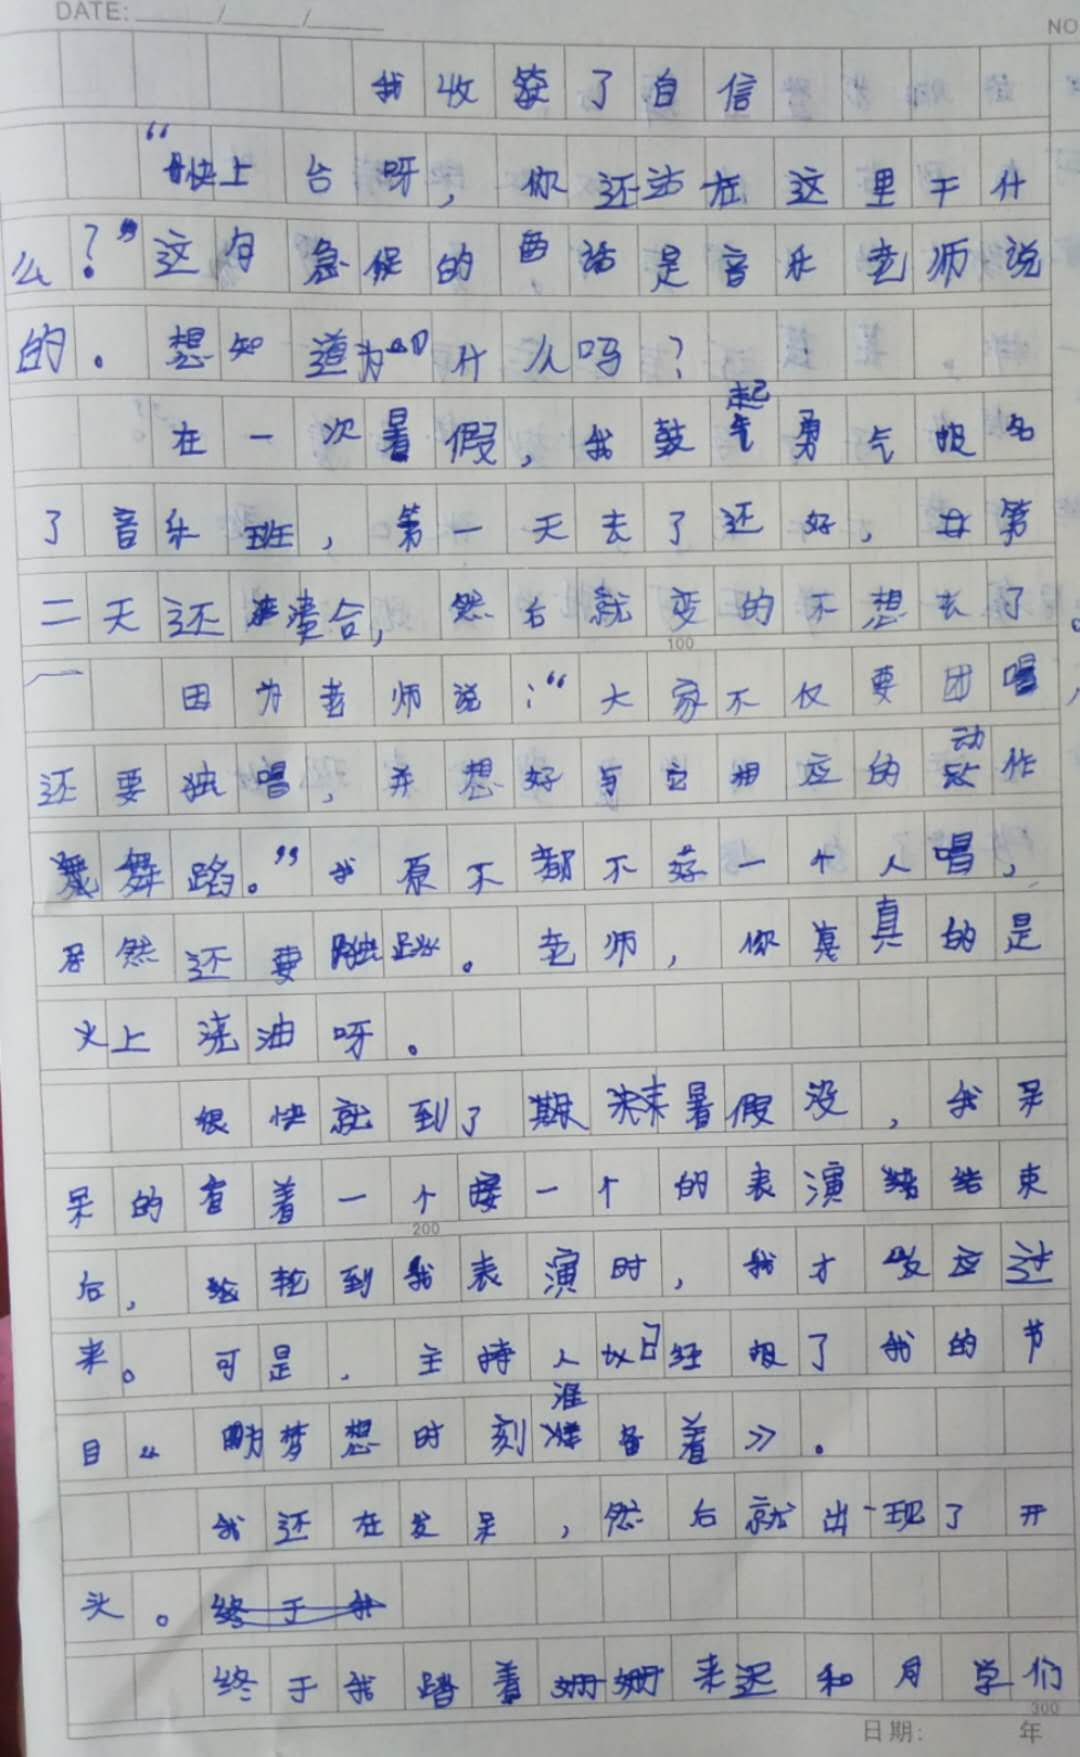 DATE: / /
NO
我收获了自信
“快上台呀，你还站在这里干什
么？”这句急促的话是音乐老师说
的。想知道为什么吗？
在一次暑假，我鼓起勇气报名
了音乐班，第一天去了还好，第
二天还凑合，然后就变的不想去了。
100
因为老师说：“大家不仅要团唱，
还要独唱，并想好与它相应的动作
舞蹈。”我原不都不敢一个人唱，
居然还要独跳。老师，你真的是
火上浇油呀。
很快就到了期末暑假没，我呆
呆的看着一个接一个的表演结束
200
后，轮到我表演时，我才反应过
来。可是．主持人以已经报了我的节
目“ 梦想时刻准备着》。
我还在发呆，然后就出现了开
头。
终于我踏着姗姗来迟和同学们
300
日期: 年